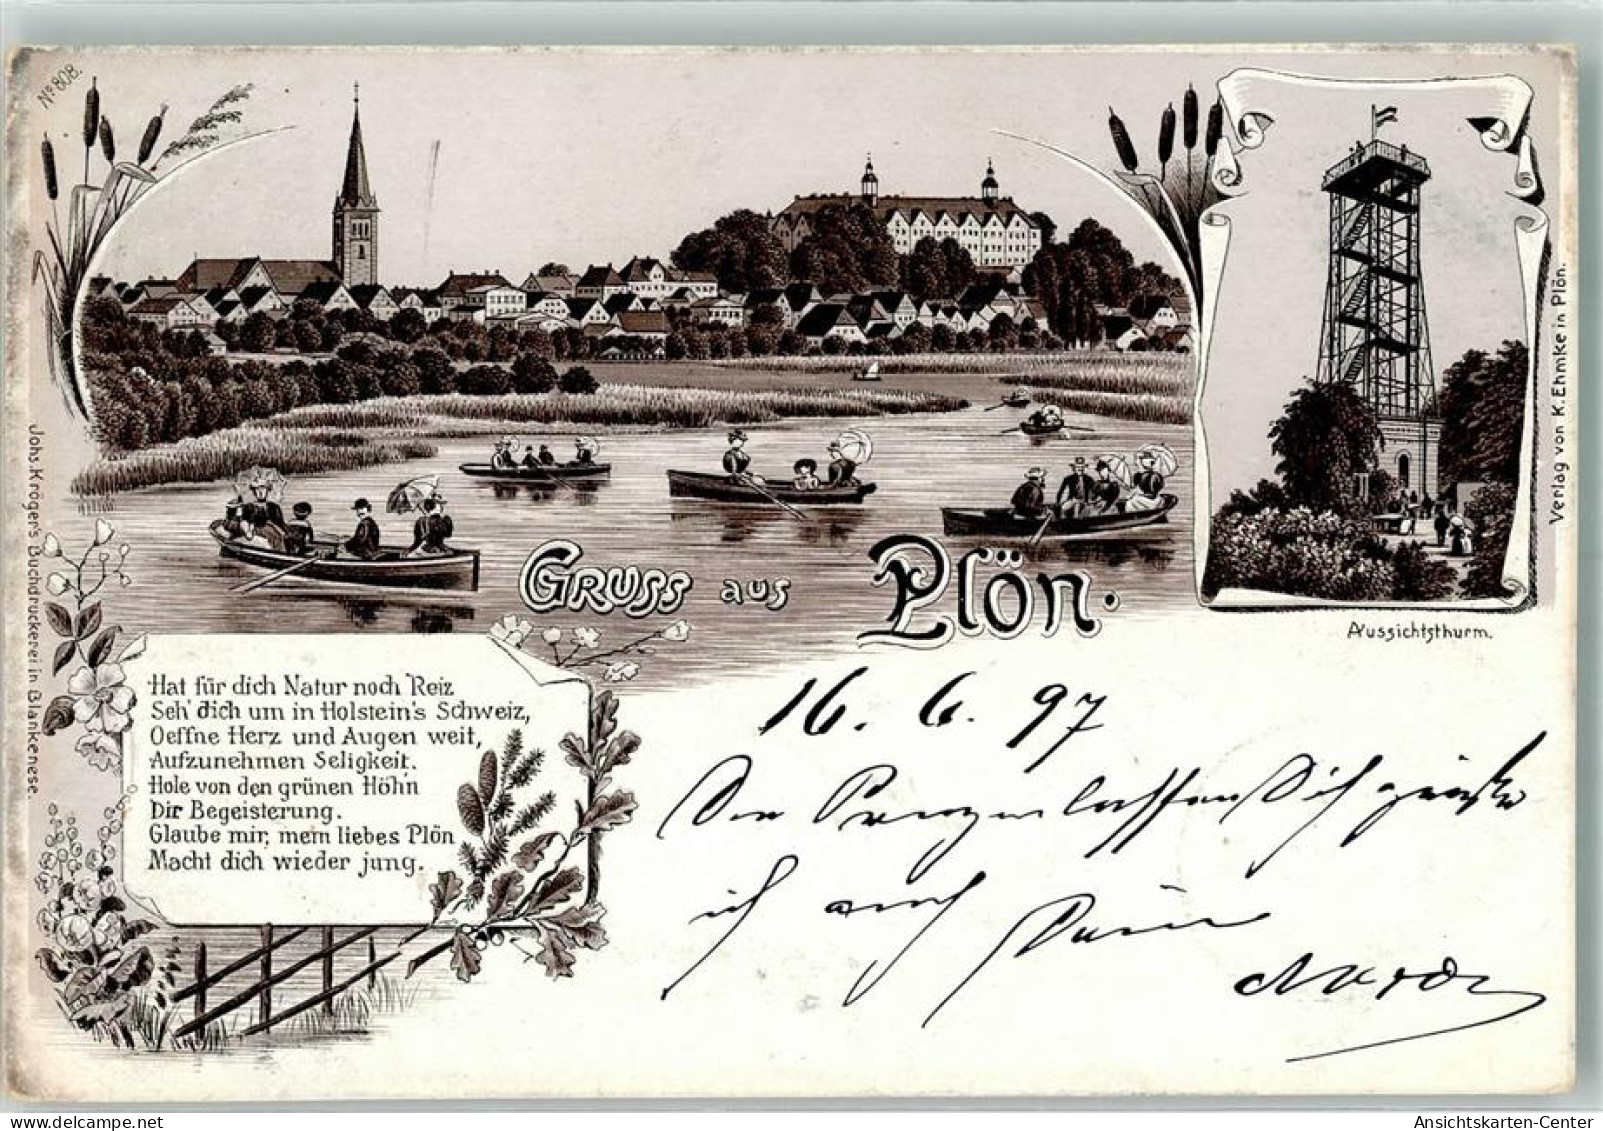 No 808.
Gruss aus Plön.
Aussichtsthurm.
Verlag von K. Ehmke in Plön.
Johs. Kröger's Buchdruckerei in Blankenese.
Hat für dich Natur noch Reiz
Seh' dich um in Holstein's Schweiz,
Oeffne Herz und Augen weit,
Aufzunehmen Seligkeit.
Hole von den grünen Höh'n
Dir Begeisterung.
Glaube mir, mein liebes Plön
Macht dich wieder jung.
16. 6. 97
ich auch
Ansichtskarten-Center